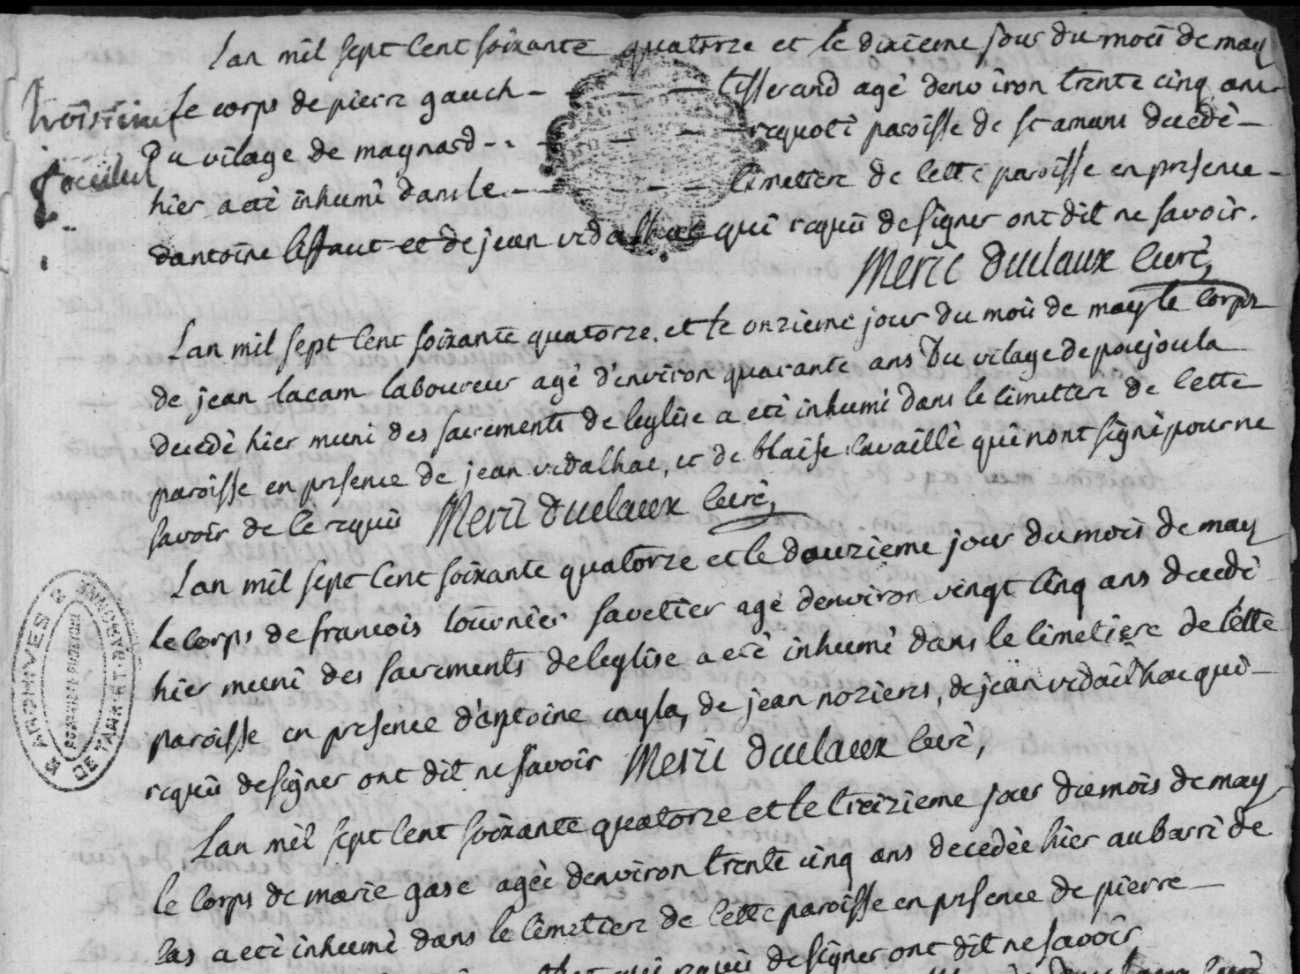 Lan mil sept cent soixante quatorze et le dixieme jour du mois de may
le corps de pierre gauch - tisserand agé denviron trente cinq ans
Du vilage de maynard - paroisse de st amans decedé
hier a eté inhumé dans le - cimetiere de cette paroisse en presence
dantoine lissaut et de jean vidalhac qui requis de signer ont dit ne savoir.
Meric duclaux curé,
Lan mil sept cent soixante quatorze. et le onzieme jour du mois de may le corps
de jean lacam laboureur agé d'environ quarante ans Du vilage de poujoula
decedé hier muni des sacrements de leglise a eté inhumé dans le cimetiere de cette
paroisse en presence de jean vidalhac, et de blaise cavaillé qui nont signé pour ne
savoir de ce requis Meric duclaux curé,
Lan mil sept cent soixante quatorze et le douzieme jour du mois de may
le corps de francois tournier savetier agé denviron vingt cinq ans decedé
hier muni des sacrements de leglise a eté inhumé dans le cimetiere de cette
paroisse en presence d'antoine cayla, de jean noziers, de jean vidailhac qui
requis de signer ont dit ne savoir Meric duclaux curé,
Lan mil sept cent soixante quatorze et le treizieme jour du mois de may
le corps de marie gasc agée denviron trente cinq ans decedée hier au barri de
las a eté inhumé dans le cimetiere de cette paroisse en presence de pierre
qui requis de signer ont dit ne savoir
ARCHIVES